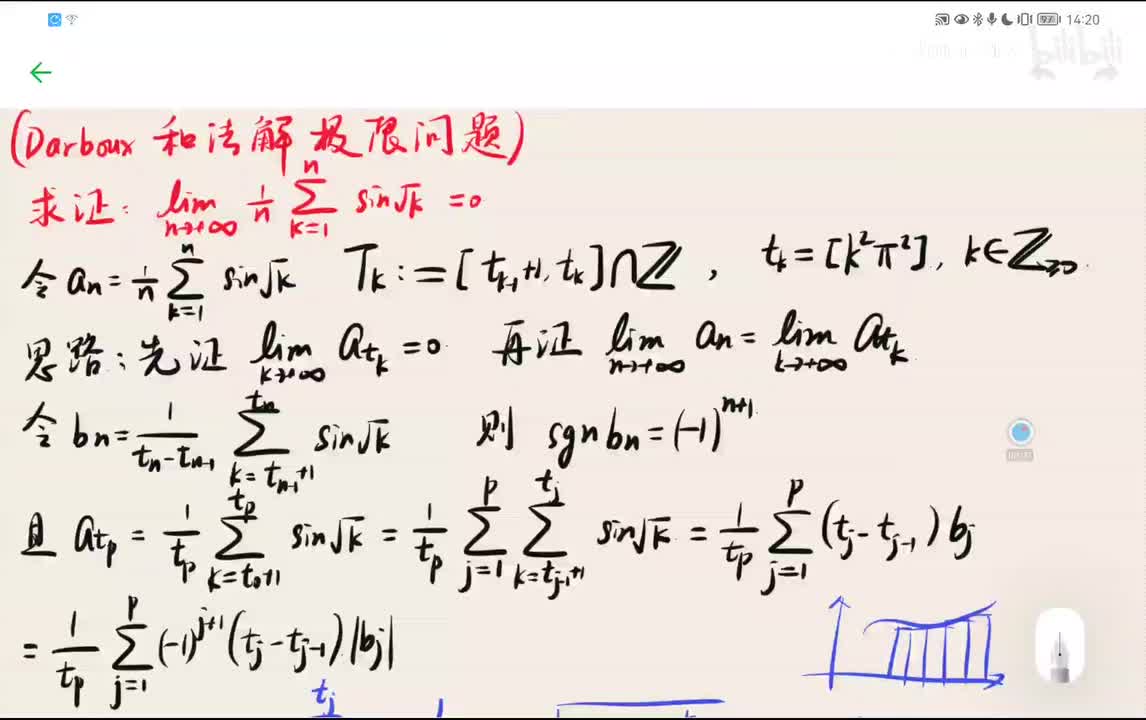 14:20
bilibili
(Darboux 和法解极限问题)
求证: lim_{n→+∞} 1/n ∑_{k=1}^{n} sin√k = 0
令 a_n = 1/n ∑_{k=1}^{n} sin√k T_k := [t_{k-1}+1, t_k]∩ℤ, t_k = [k²π²], k∈ℤ_{≥0}.
思路: 先证 lim_{k→+∞} a_{t_k} = 0 再证 lim_{n→+∞} a_n = lim_{k→+∞} a_{t_k}
令 b_n = 1/(t_n - t_{n-1}) ∑_{k=t_{n-1}+1}^{t_n} sin√k 则 sgn b_n = (-1)^{n+1}.
且 a_{t_p} = 1/t_p ∑_{k=t_0+1}^{t_p} sin√k = 1/t_p ∑_{j=1}^{p} ∑_{k=t_{j-1}+1}^{t_j} sin√k = 1/t_p ∑_{j=1}^{p} (t_j - t_{j-1}) b_j
= 1/t_p ∑_{j=1}^{p} (-1)^{j+1} (t_j - t_{j-1}) |b_j|
t_j